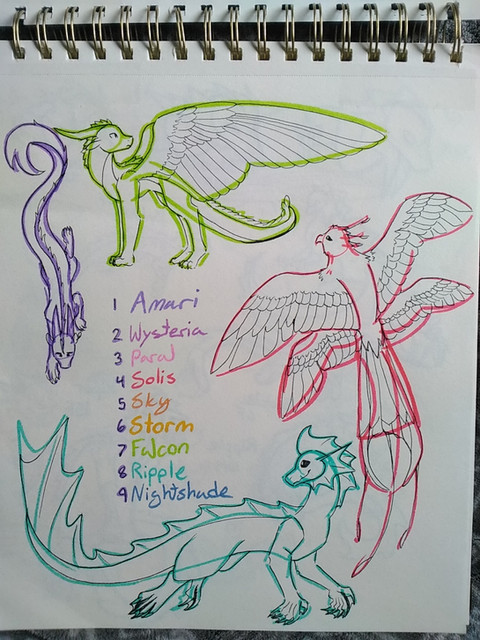 1 Amari
2 Wysteria
3 Paral
4 Solis
5 Sky
6 Storm
7 Falcon
8 Ripple
9 Nightshade